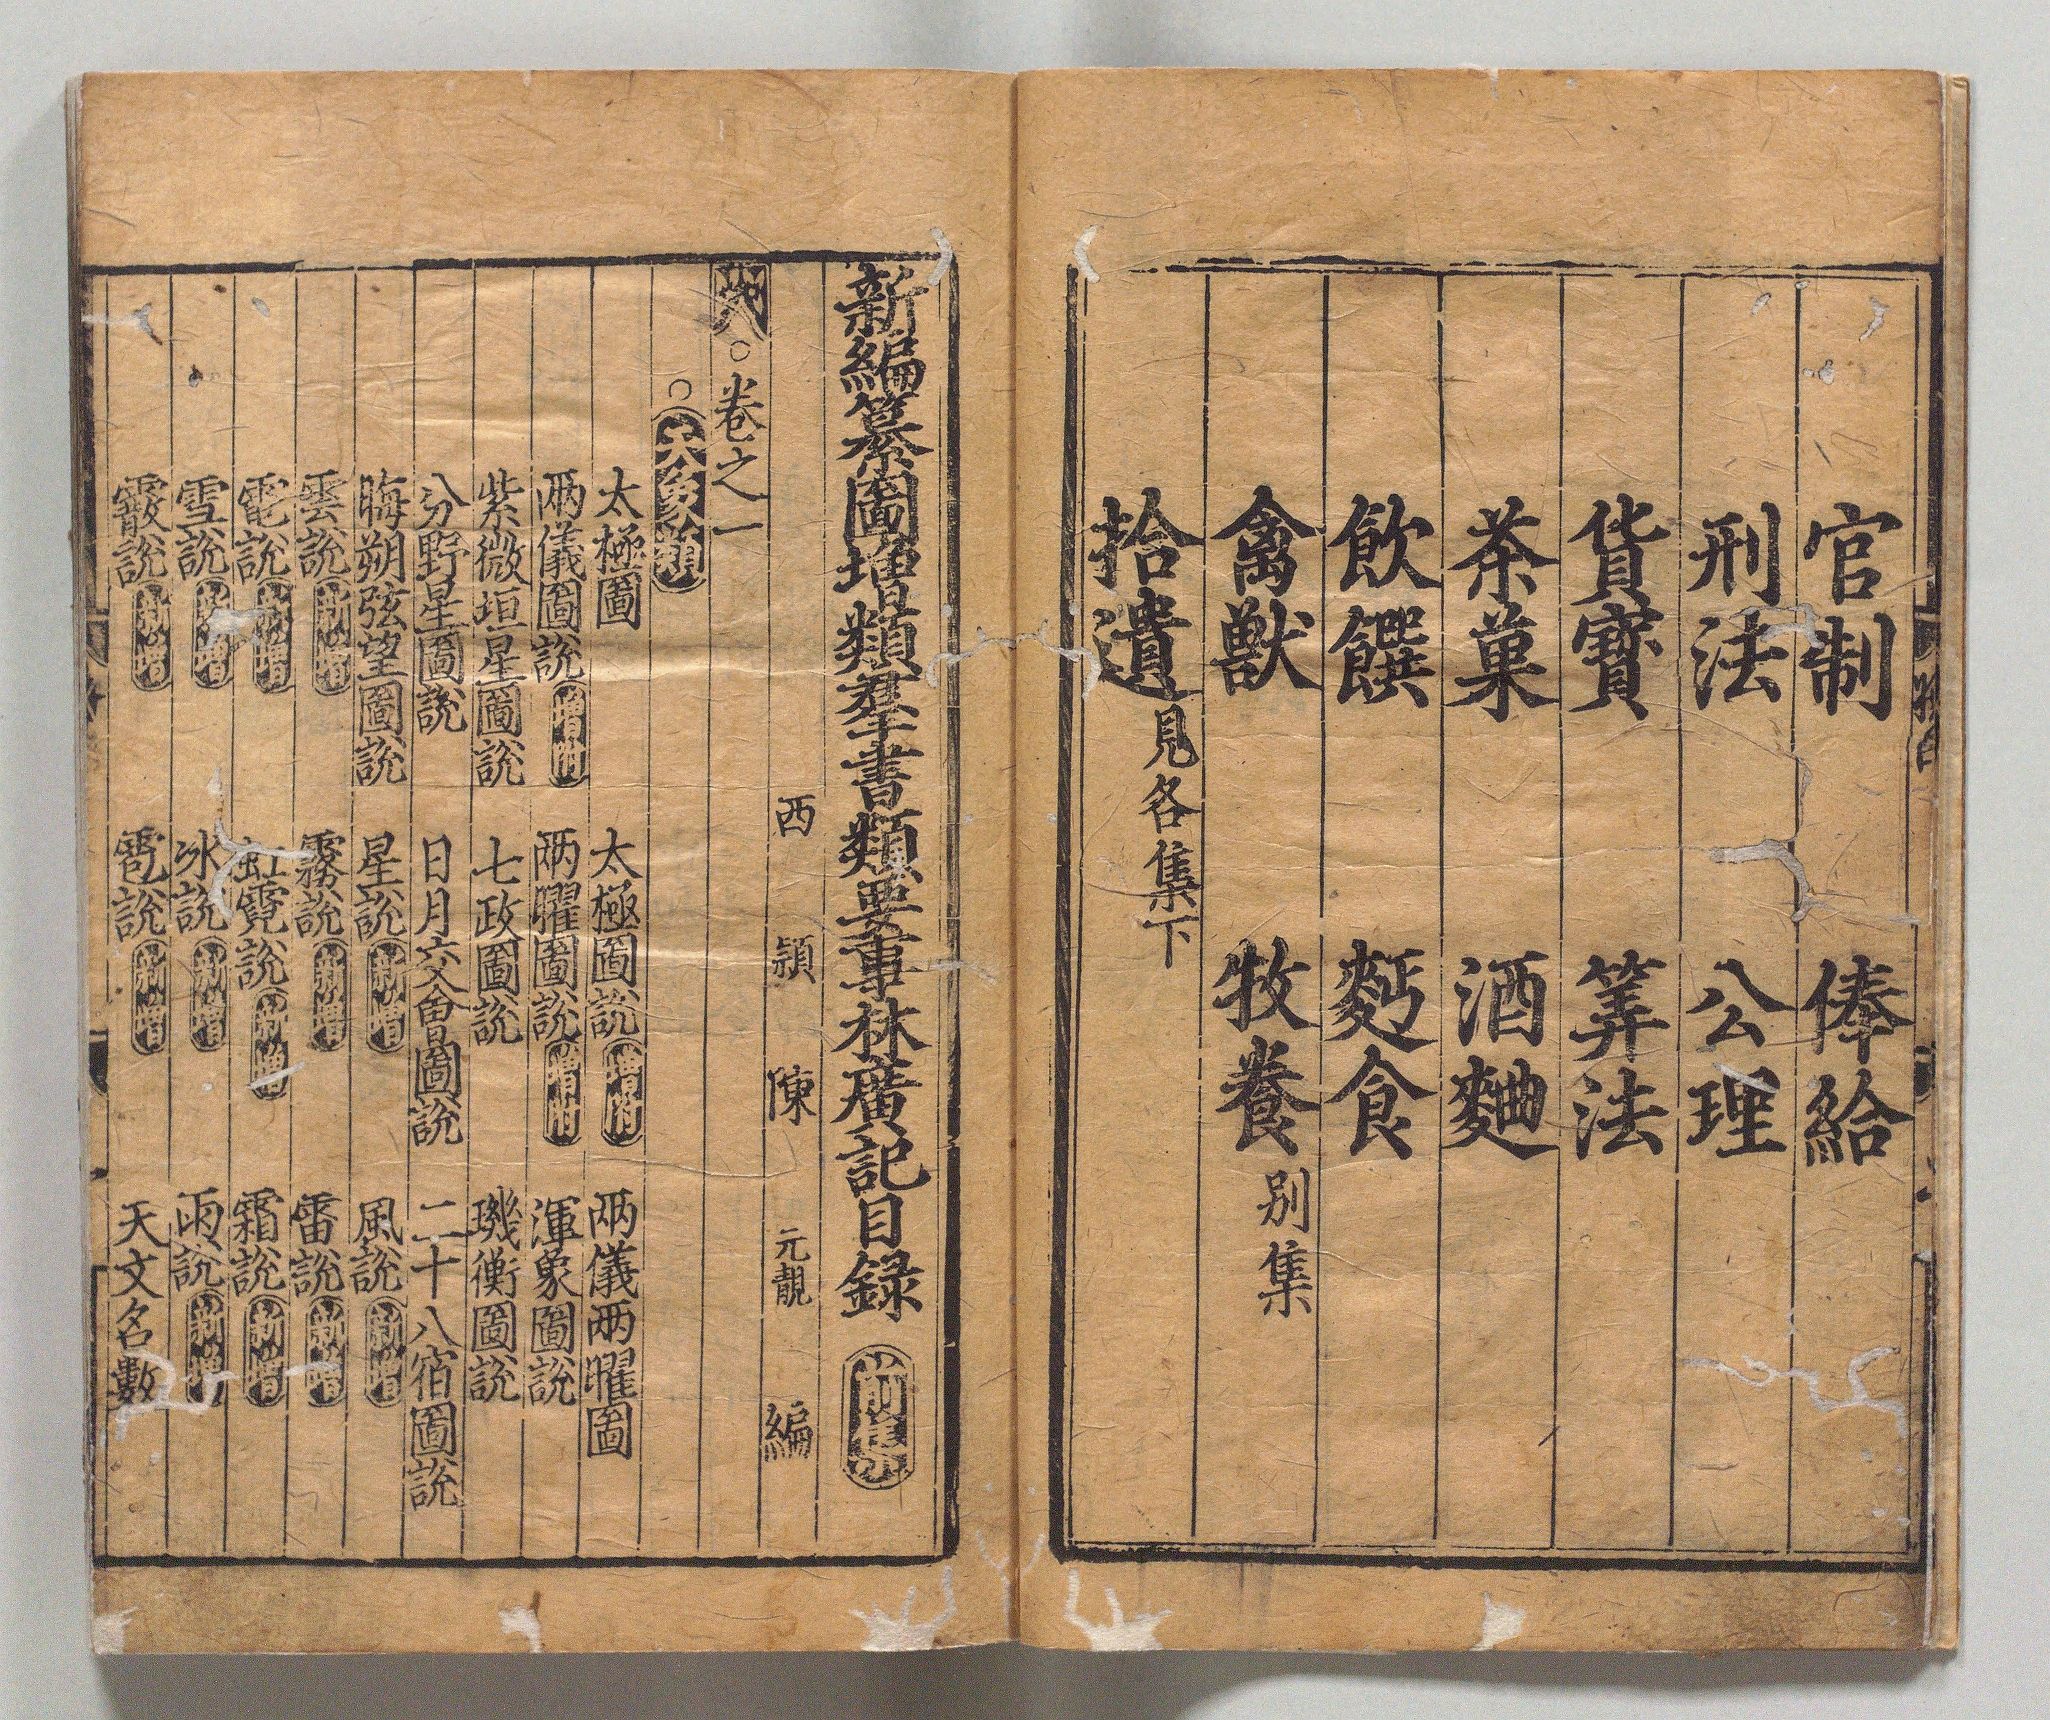 官制 俸給
刑法 公理
貨寶 筭法
茶菓 酒麯
飲饌 麪食
禽獸 牧養 别集
拾遺 見各集下
新編纂圖增類羣書類要事林廣記目録 前集
西頴陳元靚編
卷之一
天象類
太極圖 太極圖説 增附 兩儀兩曜圖
兩儀圖説 增附 兩曜圖説 增附 渾象圖説
紫微垣星圖説 七政圖説 璣衡圖説
分野星圖説 日月交會圖説 二十八宿圖説
晦朔弦望圖説 星説 新增 風説 新增
雲説 新增 霧説 新增 雷説 新增
電説 新增 虹霓説 新增 霜説 新增
雪説 新增 氷説 新增 雨説 新增
霰説 新增 雹説 新增 天文名數